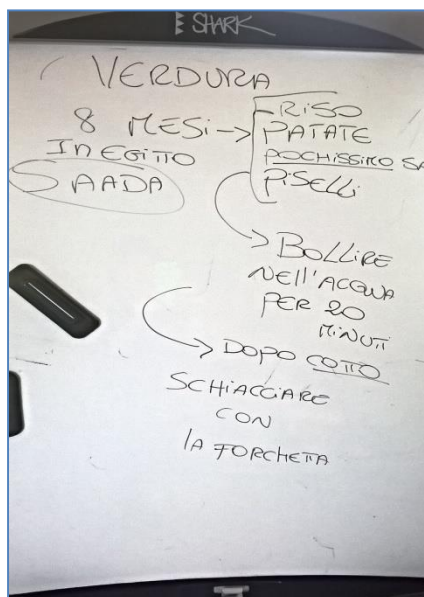 SHARK
VERDURA
8 MESI → RISO
IN EGITTO PATATE
SAADA POCHISSIMO SA
PISELLI
BOLLIRE
NELL'ACQUA
PER 20
MINUTI
DOPO COTTO
SCHIACCIARE
CON
LA FORCHETTA